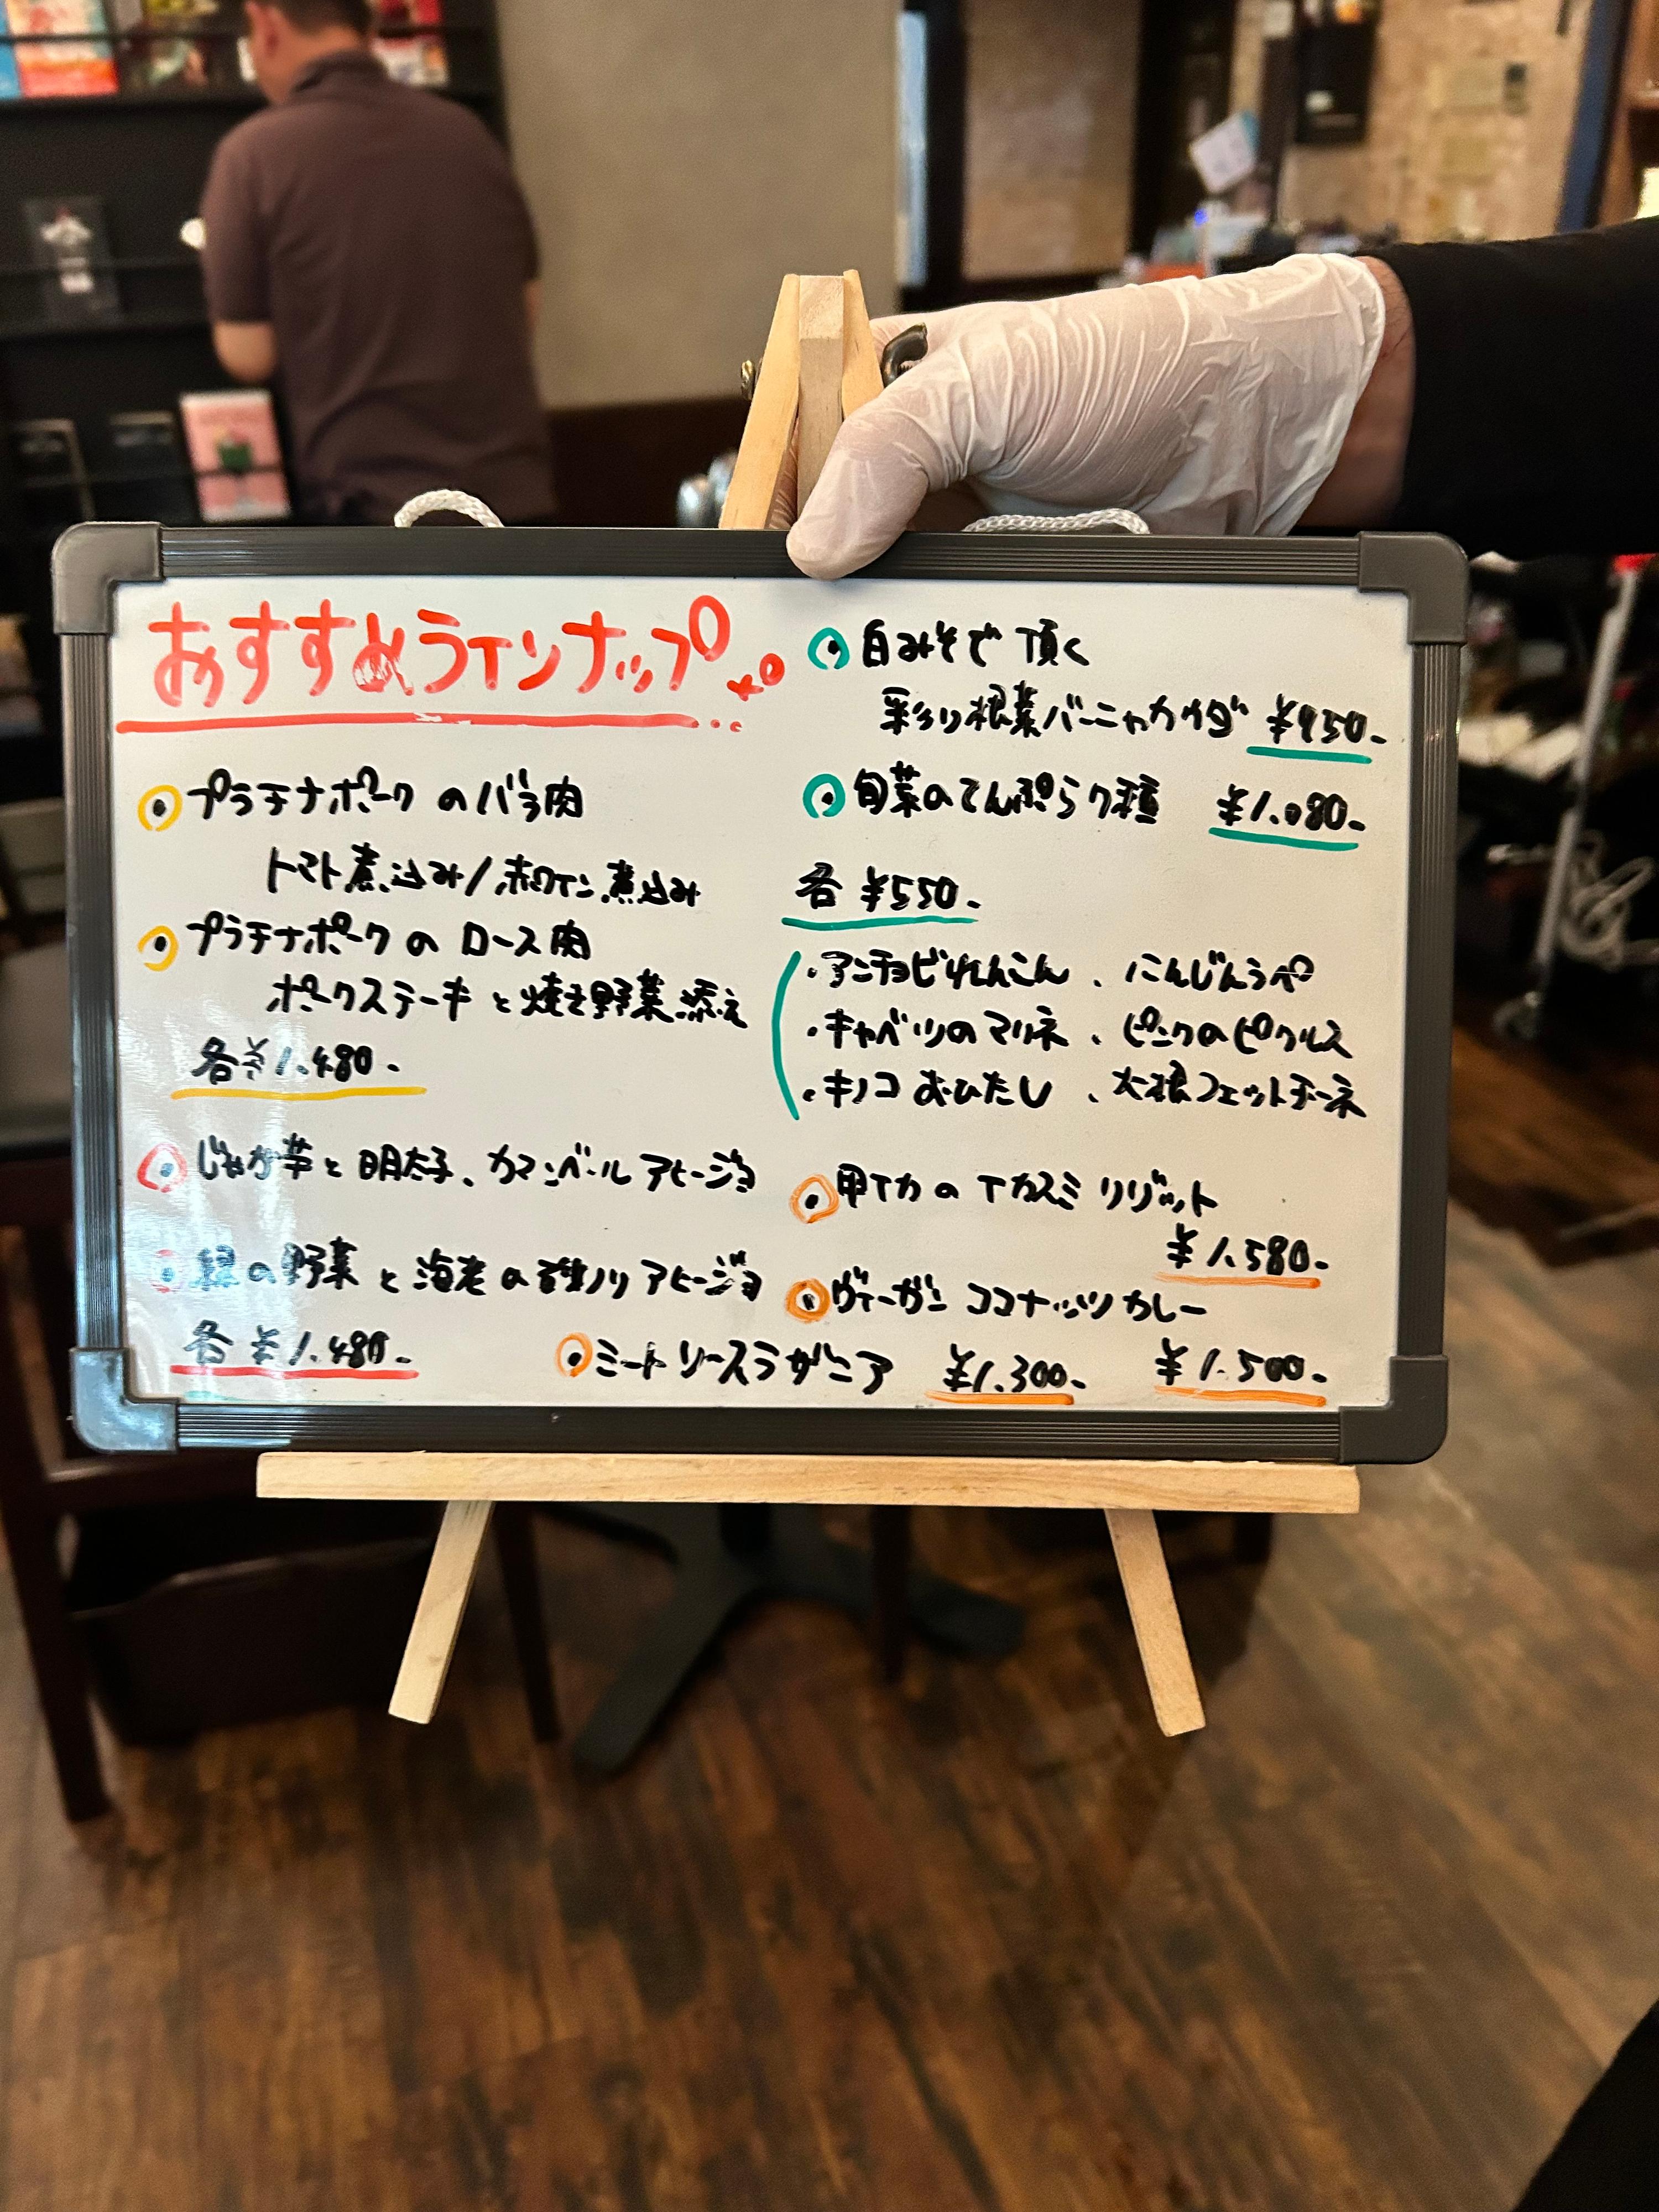 おすすめラインナップ
◎プラチナポークのバラ肉
トマト煮込み/赤ワイン煮込み
◎プラチナポークのロース肉
ポークステーキと焼き野菜添え
各¥1.480-
◎じゃが芋と明太子、カマンベールアヒージョ
◎緑の野菜と海老の磯ノリアヒージョ
各¥1.480-
◎ミートソースラザニア ¥1.300-
◎白みそで頂く
彩り根菜バーニャカウダ ¥950-
◎旬菜のてんぷら7種 ¥1.080-
各¥550-
・アンチョビれんこん、にんじんラペ
・キャベツのマリネ、ピンクのピクルス
・キノコおひたし、大根フェットチーネ
◎甲イカのイカスミリゾット
¥1.580-
◎ヴィーガンココナッツカレー
¥1.500-